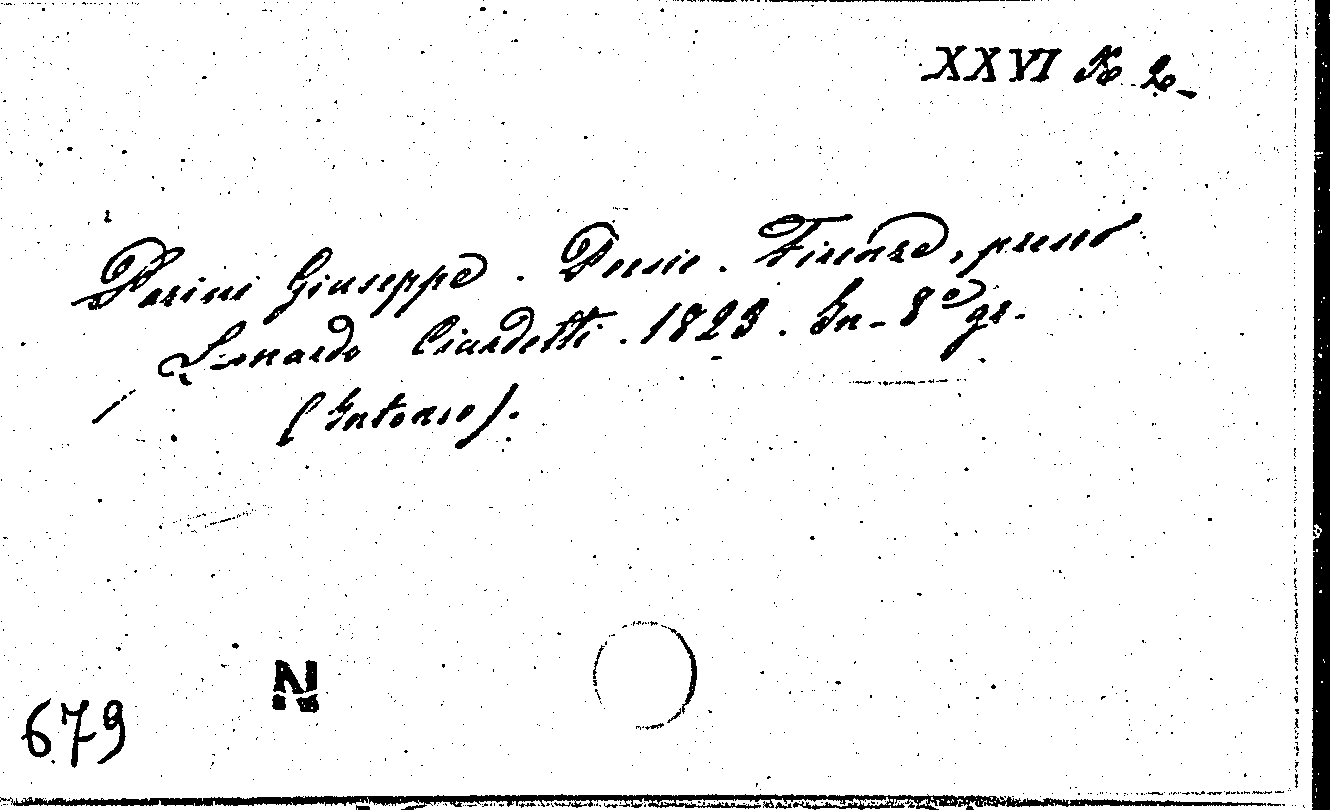 XXVI K 2-
Parini Giuseppe. Poesie. Firenze, presso
Leonardo Ciardetti. 1823. In-8º gr.
(Intonso).
N
679